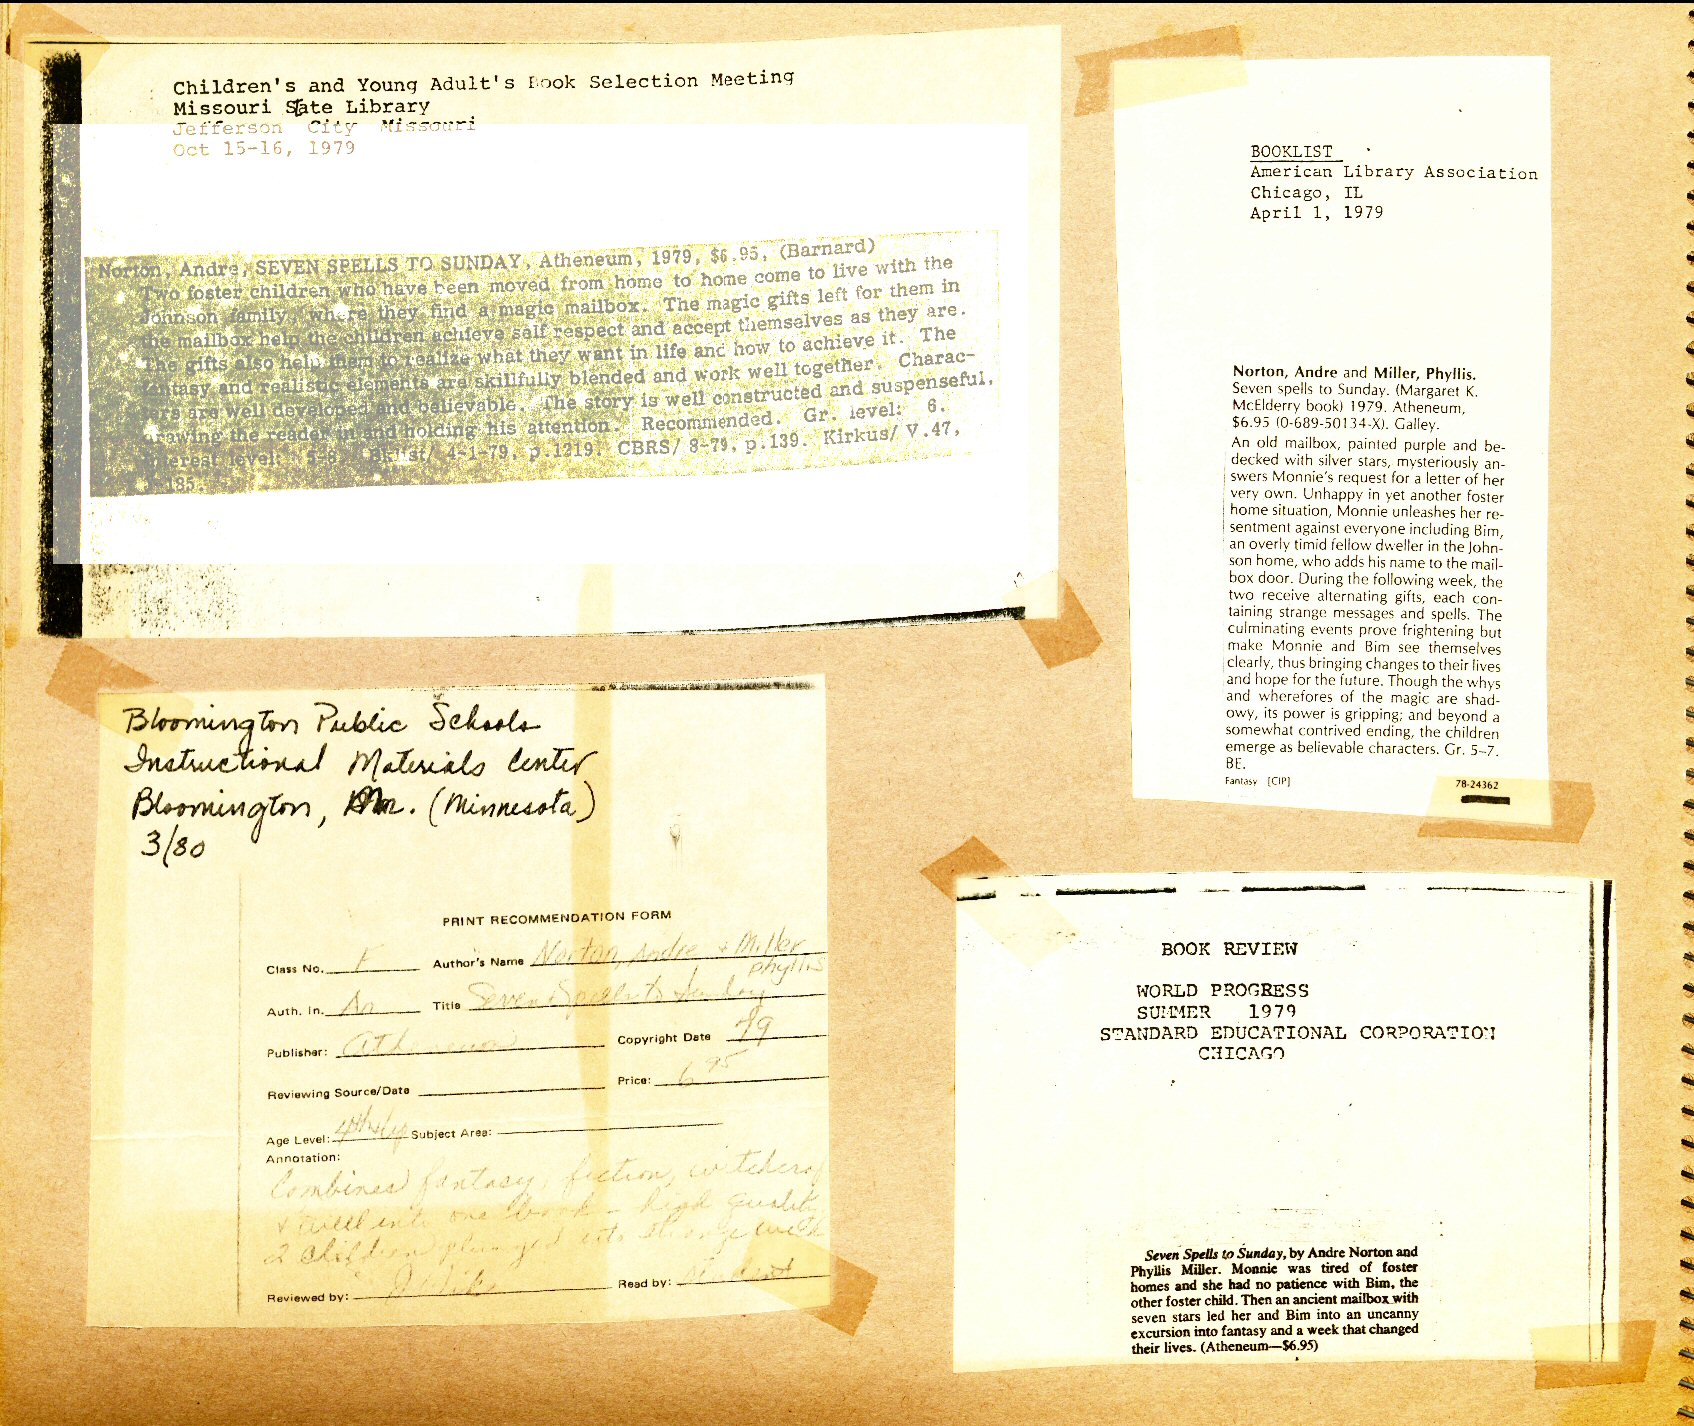 Children's and Young Adult's Book Selection Meeting
Missouri State Library
Jefferson City Missouri
Oct 15-16, 1979
Norton, Andre, SEVEN SPELLS TO SUNDAY, Atheneum, 1979, $6.95, (Barnard)
Two foster children who have been moved from home to home come to live with the
Johnson family, where they find a magic mailbox. The magic gifts left for them in
the mailbox help the children achieve self respect and accept themselves as they are.
The gifts also help them to realize what they want in life and how to achieve it. The
fantasy and realistic elements are skillfully blended and work well together. Charac-
ters are well developed and believable. The story is well constructed and suspenseful,
drawing the reader in and holding his attention. Recommended. Gr. level: 6.
Interest level: 5-8. Bklist/ 4-1-79, p.1219. CBRS/ 8-79, p.139. Kirkus/ V.47,
185.
BOOKLIST
American Library Association
Chicago, IL
April 1, 1979
Norton, Andre and Miller, Phyllis.
Seven spells to Sunday. (Margaret K.
McElderry book) 1979. Atheneum,
$6.95 (0-689-50134-X). Galley.
An old mailbox, painted purple and be-
decked with silver stars, mysteriously an-
swers Monnie's request for a letter of her
very own. Unhappy in yet another foster
home situation, Monnie unleashes her re-
sentment against everyone including Bim,
an overly timid fellow dweller in the John-
son home, who adds his name to the mail-
box door. During the following week, the
two receive alternating gifts, each con-
taining strange messages and spells. The
culminating events prove frightening but
make Monnie and Bim see themselves
clearly, thus bringing changes to their lives
and hope for the future. Though the whys
and wherefores of the magic are shad-
owy, its power is gripping; and beyond a
somewhat contrived ending, the children
emerge as believable characters. Gr. 5-7.
BE.
Fantasy [CIP] 78-24362
Bloomington Public Schools
Instructional Materials Center
Bloomington, Mn. (Minnesota)
3/80
PRINT RECOMMENDATION FORM
Class No. F Author's Name Norton, Andre + Miller
Phyllis
Auth. In. An Title Seven Spells to Sunday
Publisher: Atheneum Copyright Date 79
Reviewing Source/Date Price: 6.95
Age Level: 4th+up Subject Area:
Annotation:
Combines fantasy, fiction, witchcraf
into one book - high quality
2 children plunged into strange
Reviewed by: Read by:
BOOK REVIEW
WORLD PROGRESS
SUMMER 1979
STANDARD EDUCATIONAL CORPORATION
CHICAGO
Seven Spells to Sunday, by Andre Norton and
Phyllis Miller. Monnie was tired of foster
homes and she had no patience with Bim, the
other foster child. Then an ancient mailbox with
seven stars led her and Bim into an uncanny
excursion into fantasy and a week that changed
their lives. (Atheneum—$6.95)